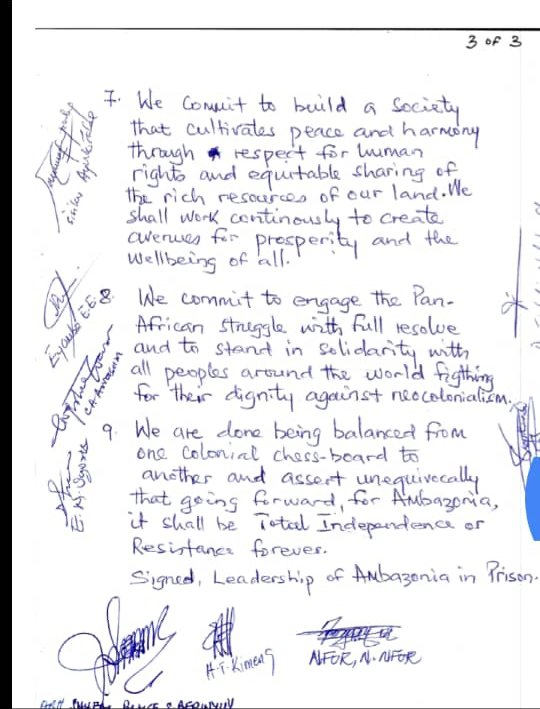 3 OF 3
7. We commit to build a society
that cultivates peace and harmony
through respect for human
rights and equitable sharing of
the rich resources of our land. We
shall work continously to create
avenues for prosperity and the
wellbeing of all.
8. We commit to engage the Pan-
African struggle with full resolve
and to stand in solidarity with
all peoples around the world figthing
for their dignity against neocolonialism.
9. We are done being balanced from
one colonial chess-board to
another and assert unequivocally
that going forward, for Ambazonia,
it shall be Total Independence or
Resistance forever.
Signed, Leadership of Ambazonia in Prison.
Eyambe E.E
H.T. Kimeng
NFOR, N. NFOR